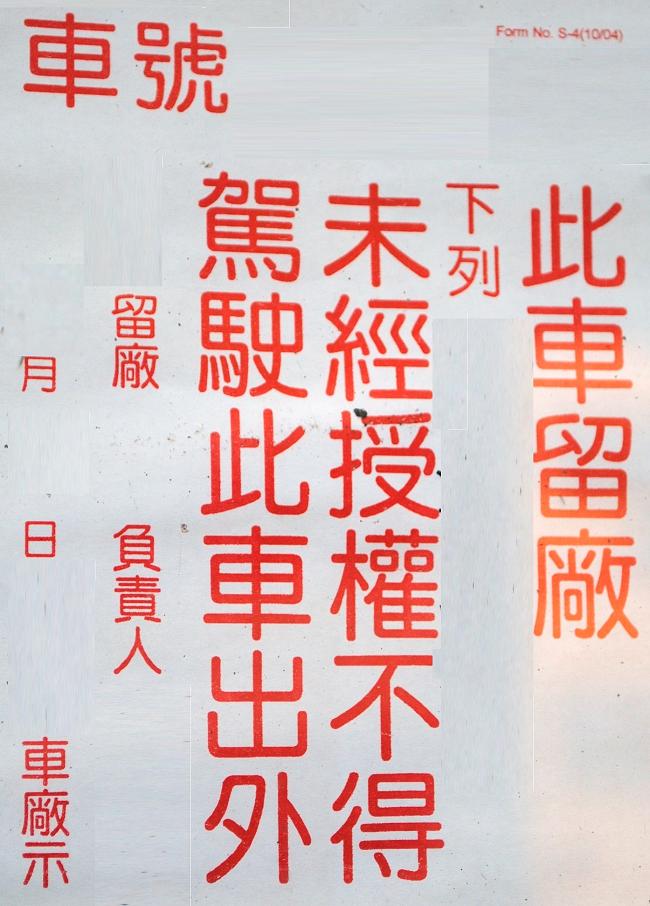 Form No. S-4(10/04)
車號
此車留廠
下列
未經授權不得
駕駛此車出外
留廠 負責人
月 日 車廠示